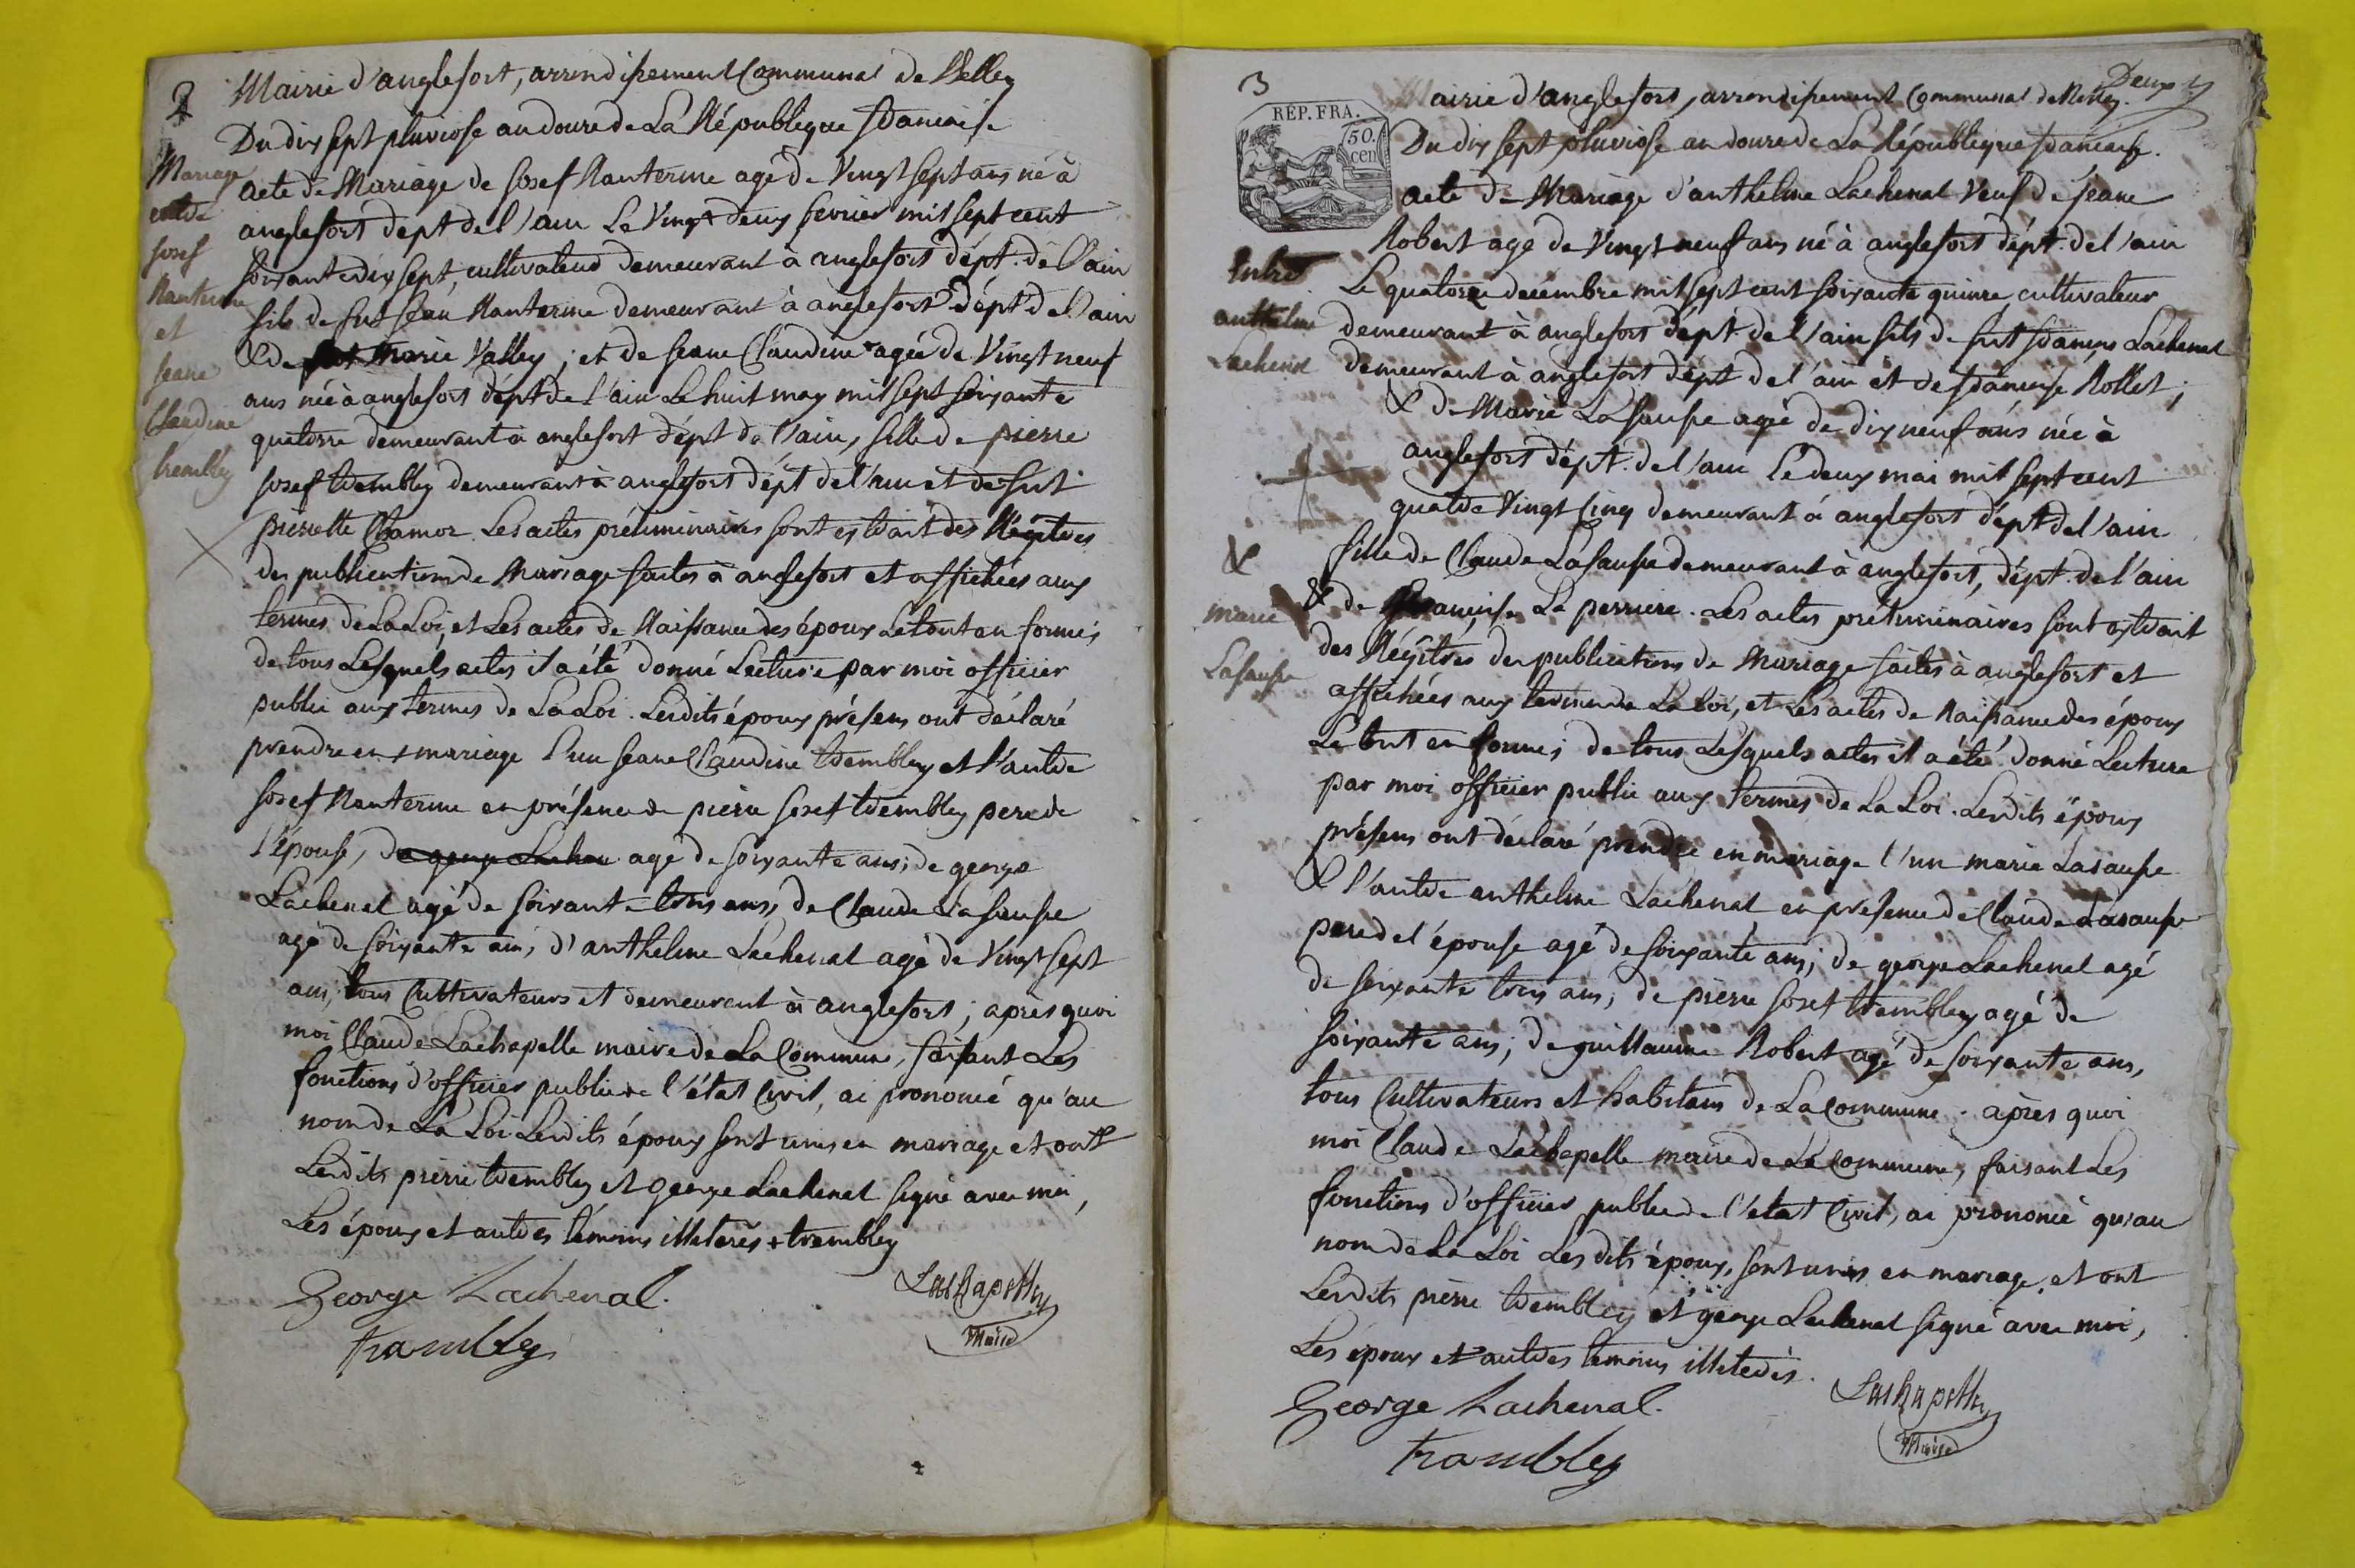 2
Mairie d'anglefort, arrondissement Communal de Belley
Du dix sept pluviose an douze de La République française
Mariage
entre
josef
Nanterme
et
jeane
Claudine
trembley
acte de Mariage de josef Nanterme agé de Vingt sept ans né à
anglefort dépt de l'ain Le Vingt deux fevrier mil sept cent
soixante dix sept, cultivateur demeurant à anglefort dépt. de l'ain
fils de fut jean Nanterme demeurant à anglefort dépt. de l'ain
& de Marie Valley; et de jeane Claudine + agée de Vingt neuf
ans née à anglefort dépt de l'ain Le huit may mil sept soixante
quatorze demeurant à anglefort dépt de l'ain, fille de pierre
josef trembley demeurant à anglefort dépt de l'ain et de fut
pierrette Chamoz. Les actes préliminaires sont extrait des Régitres
des publications de Mariage faites à anglefort et affichées aux
termes de La Loi, et Les actes de Naissance des époux Le tout en forme;
de tous Lesquels actes il a été donné Lecture par moi officier
public aux termes de La Loi. Lesdits époux présens ont déclaré
prendre en mariage l'un jeane Claudine trembley et l'autre
josef Nanterme en présence de pierre josef trembley pere de
l'épouse, de george Lachenal agé de soixante ans; de george
Lachenal agé de soixante trois ans, de Claude Lasausse
agé de soixante ans, d'anthelme Lachenal agé de Vingt sept
ans, tous Cultivateurs et demeurant à anglefort; après quoi
moi Claude Lachapelle maire de La Commune, faisant Les
fonctions d'officier public de l'état Civil, ai prononcé qu'au
nom de La Loi Lesdits époux sont unis en mariage et ont
Lesdits pierre trembley et george Lachenal signé avec moi,
Les époux et autres témoins illeterés + trembley
George Lachenal.
Lachapelle
Maire
trambley
3
Deux
REP. FRA.
50.
cen
Mairie d'anglefort, arrondissement Communal de Belley.
Du dix sept pluviose an douze de La République française.
Entre
anthelme
Lachenal
&
marie
Lasausse
acte de Mariage d'anthelme Lachenal Veuf de jeane
Robert agé de Vingt neuf ans né à anglefort dépt. de l'ain
Le quatorze décembre mil sept cent soixante quinze, cultivateur
demeurant à anglefort dépt de l'ain fils de fut françois Lachenal
demeurant à anglefort dépt de l'ain et de françoise Rollet;
& de Marie Lasausse agée de dix neuf ans née à
anglefort dépt. de l'ain Le deux mai mil sept cent
quatre Vingt Cinq demeurant à anglefort dépt de l'ain
fille de Claude Lasausse demeurant à anglefort, dépt. de l'ain
& de françoise La perriere. Les actes préliminaires sont extrait
des Régîtres des publications de Mariage faites à anglefort et
affichées aux termes de La Loi, et Les actes de Naissance des époux
Le tout en forme; de tous Lesquels actes il a été donné Lecture
par moi officier public aux termes de La Loi. Lesdits époux
présens ont déclaré prendre en mariage l'un marie Lasausse
& l'autre anthelme Lachenal en présence de Claude Lasausse
pere de l'épouse agé de soixante ans; de george Lachenal agé
de soixante trois ans; de pierre josef trembley agé de
soixante ans; de guillaume Robert agé de soixante ans,
tous Cultivateurs et habitans de La Commune. après quoi
moi Claude Lachapelle maire de La Commune, faisant Les
fonctions d'officier public de l'état Civil, ai prononcé qu'au
nom de La Loi Lesdits époux, sont unis en mariage, et ont
Lesdits pierre trembley et george Lachenal signé avec moi,
Les époux et autres temoins illeterés.
George Lachenal.
Lachapelle
Maire
trambley